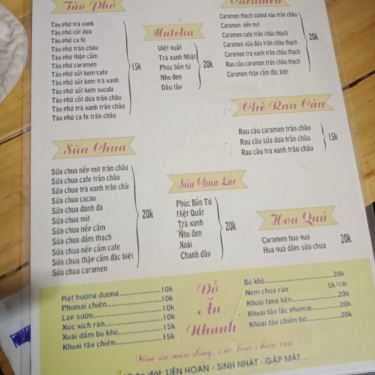 Tào Phớ
Tào phớ trà xanh
Tào phớ cốt dừa
Tào phớ ca fe
Tào phớ trân châu
Tào phớ thập cẩm
Tào phớ caramen
Tào phớ sút kem cafe
Tào phớ sút kem trà xanh
Tào phớ sút kem socola
Tào phớ cốt dừa trân châu
Tào phớ trà xanh trân châu
Tào phớ ca fe trân châu
15k
Matcha
Việt quất
Trà xanh Nhật
Phúc bồn tử
Nho đen
Dâu tây
20k
Caramen
Caramen nếp mít
Caramen cafe trân châu thạch
Caramen sữa dừa trân châu thạch
Caramen trà xanh trân châu thạch
Rau câu caramen trân châu
Caramen thập cẩm đặc biệt
20k
Chè Rau Câu
Rau câu caramen trân châu
Rau câu sữa dừa trân châu
Rau câu trà xanh trân châu
15k
Sữa Chua
Sữa chua nếp mít trân châu
Sữa chua cafe trân châu
Sữa chua trà xanh trân châu
Sữa chua cacao
Sữa chua đánh đá
Sữa chua mít
Sữa chua nếp cẩm
Sữa chua dầm thạch
Sữa chua nếp cẩm cafe
Sữa chua thập cẩm đặc biệt
Sữa chua caramen
20k
Sữa Chua Lắc
Phúc Bồn Tử
Việt Quất
Trà xanh
Nho đen
Xoài
Chanh dâu
20k
Hoa Quả
Caramen hoa quả
Hoa quả dầm sữa chua
20k
Đồ
Ăn
Nhanh
Viet hương dương 10k
Phomai chiên 10k
Lạp sườn 10k
Xúc xích rán 10k
Xoài dầm bò khô 20k
Khoai tây chiên 15k
Bò khô 20k
Nem chua rán 5k
Khoai lang kén 20k
Khoai tây lắc phomai 20k
Khoai tây chiên bơ 20k
LIÊN HOAN - SINH NHẬT - GẶP MẶT